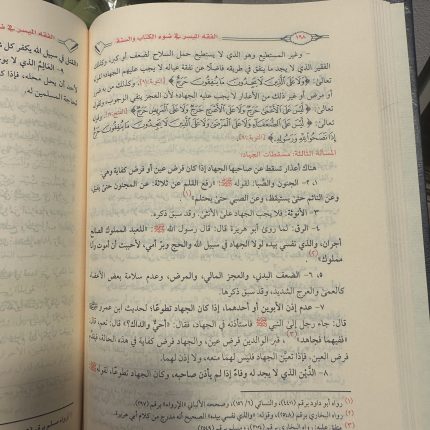 الفقه الميسر في ضوء الكتاب والسنة
١٩٨
وغير المستطيع وهو الذي لا يستطيع حمل السلاح لضعف أو كبر، وكذلك
الفقير الذي لا يجد ما ينفق في طريقه فاضلًا عن نفقة عياله لا يجب عليهم الجهاد؛ لقوله
تعالى: ﴿وَلَا عَلَى الَّذِينَ لَا يَجِدُونَ مَا يُنْفِقُونَ حَرَجٌ﴾ [التوبة: ٩١]. وكذلك من به
أو مرض أو غير ذلك من الأعذار لا يجب عليه الجهاد؛ لأن العجز ينفي الوجوب
تعالى: ﴿لَيْسَ عَلَى الْأَعْمَى حَرَجٌ وَلَا عَلَى الْأَعْرَجِ حَرَجٌ وَلَا عَلَى الْمَرِيضِ حَرَجٌ﴾
تعالى: ﴿لَيْسَ عَلَى الضُّعَفَاءِ وَلَا عَلَى الْمَرْضَى وَلَا عَلَى الَّذِينَ لَا يَجِدُونَ مَا يُنْفِقُونَ حَرَجٌ
إِذَا نَصَحُوا لِلَّهِ وَرَسُولِهِ﴾ [التوبة: ٩١].
المسألة الثالثة: مسقطات الجهاد:
هناك أعذار تسقط عن صاحبها الجهاد إذا كان فرض عين أو فرض كفاية وهي:
١، ٢- الجنون والصِّبا: لقوله ﷺ: «رفع القلم عن ثلاثة: عن المجنون حتى يفيق،
وعن النائم حتى يستيقظ، وعن الصبي حتى يحتلم» (١).
٣- الأنوثة: فلا يجب الجهاد على الأنثى. وقد سبق ذكره.
٤- الرق: لما روى أبو هريرة قال: قال رسول الله ﷺ: «للعبد المملوك الصالح
أجران، والذي نفسي بيده لولا الجهاد في سبيل الله والحج وبرّ أمي، لأحببت أن أموت وأنا
مملوك» (٢).
٥، ٦- الضعف البدني، والعجز المالي، والمرض، وعدم سلامة بعض الأعضاء
كالعمى والعرج الشديد، وقد سبق ذكرها.
٧- عدم إذن الأبوين أو أحدهما، إذا كان الجهاد تطوعًا؛ لحديث ابن عمرو
قال: جاء رجل إلى النبي ﷺ فاستأذنه في الجهاد، فقال: «أحيٌّ والداك؟» قال: نعم. قال:
«ففيهما فجاهد» (٣)؛ فبر الوالدين فرض عين، والجهاد فرض كفاية في هذه الحالة،
فرض العين. فإذا تعيَّن الجهاد فليس لهما منعه، ولا إذن لهما.
٨- الدَّيْن الذي لا يجد له وفاءً إذا لم يأذن صاحبه، وكان الجهاد تطوعًا؛ لقوله
(١) رواه أبو داود برقم
(٢) رواه البخاري برقم (٢٥٤٨)، وقوله: «والذي نفسي بيده» الصحيح أنه مدرج من كلام أبي هريرة.
(٣)